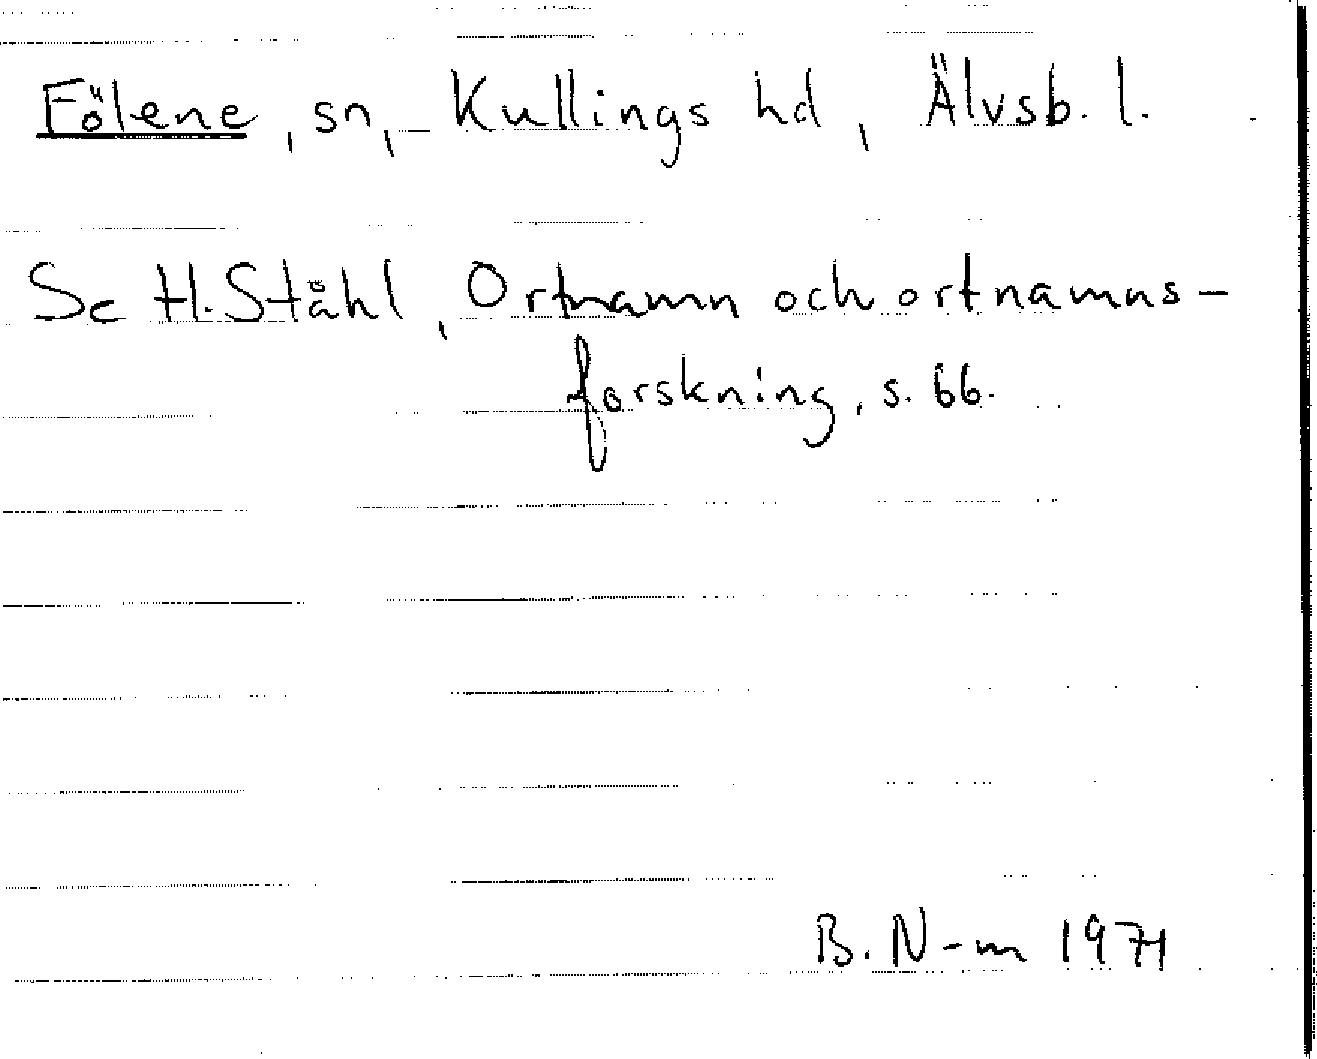 Fölene, sn, Kullings hd, Älvsb. l.
Se H. Ståhl, Ortnamn och ortnamns-
forskning, s. 66.
B. N-m 1971